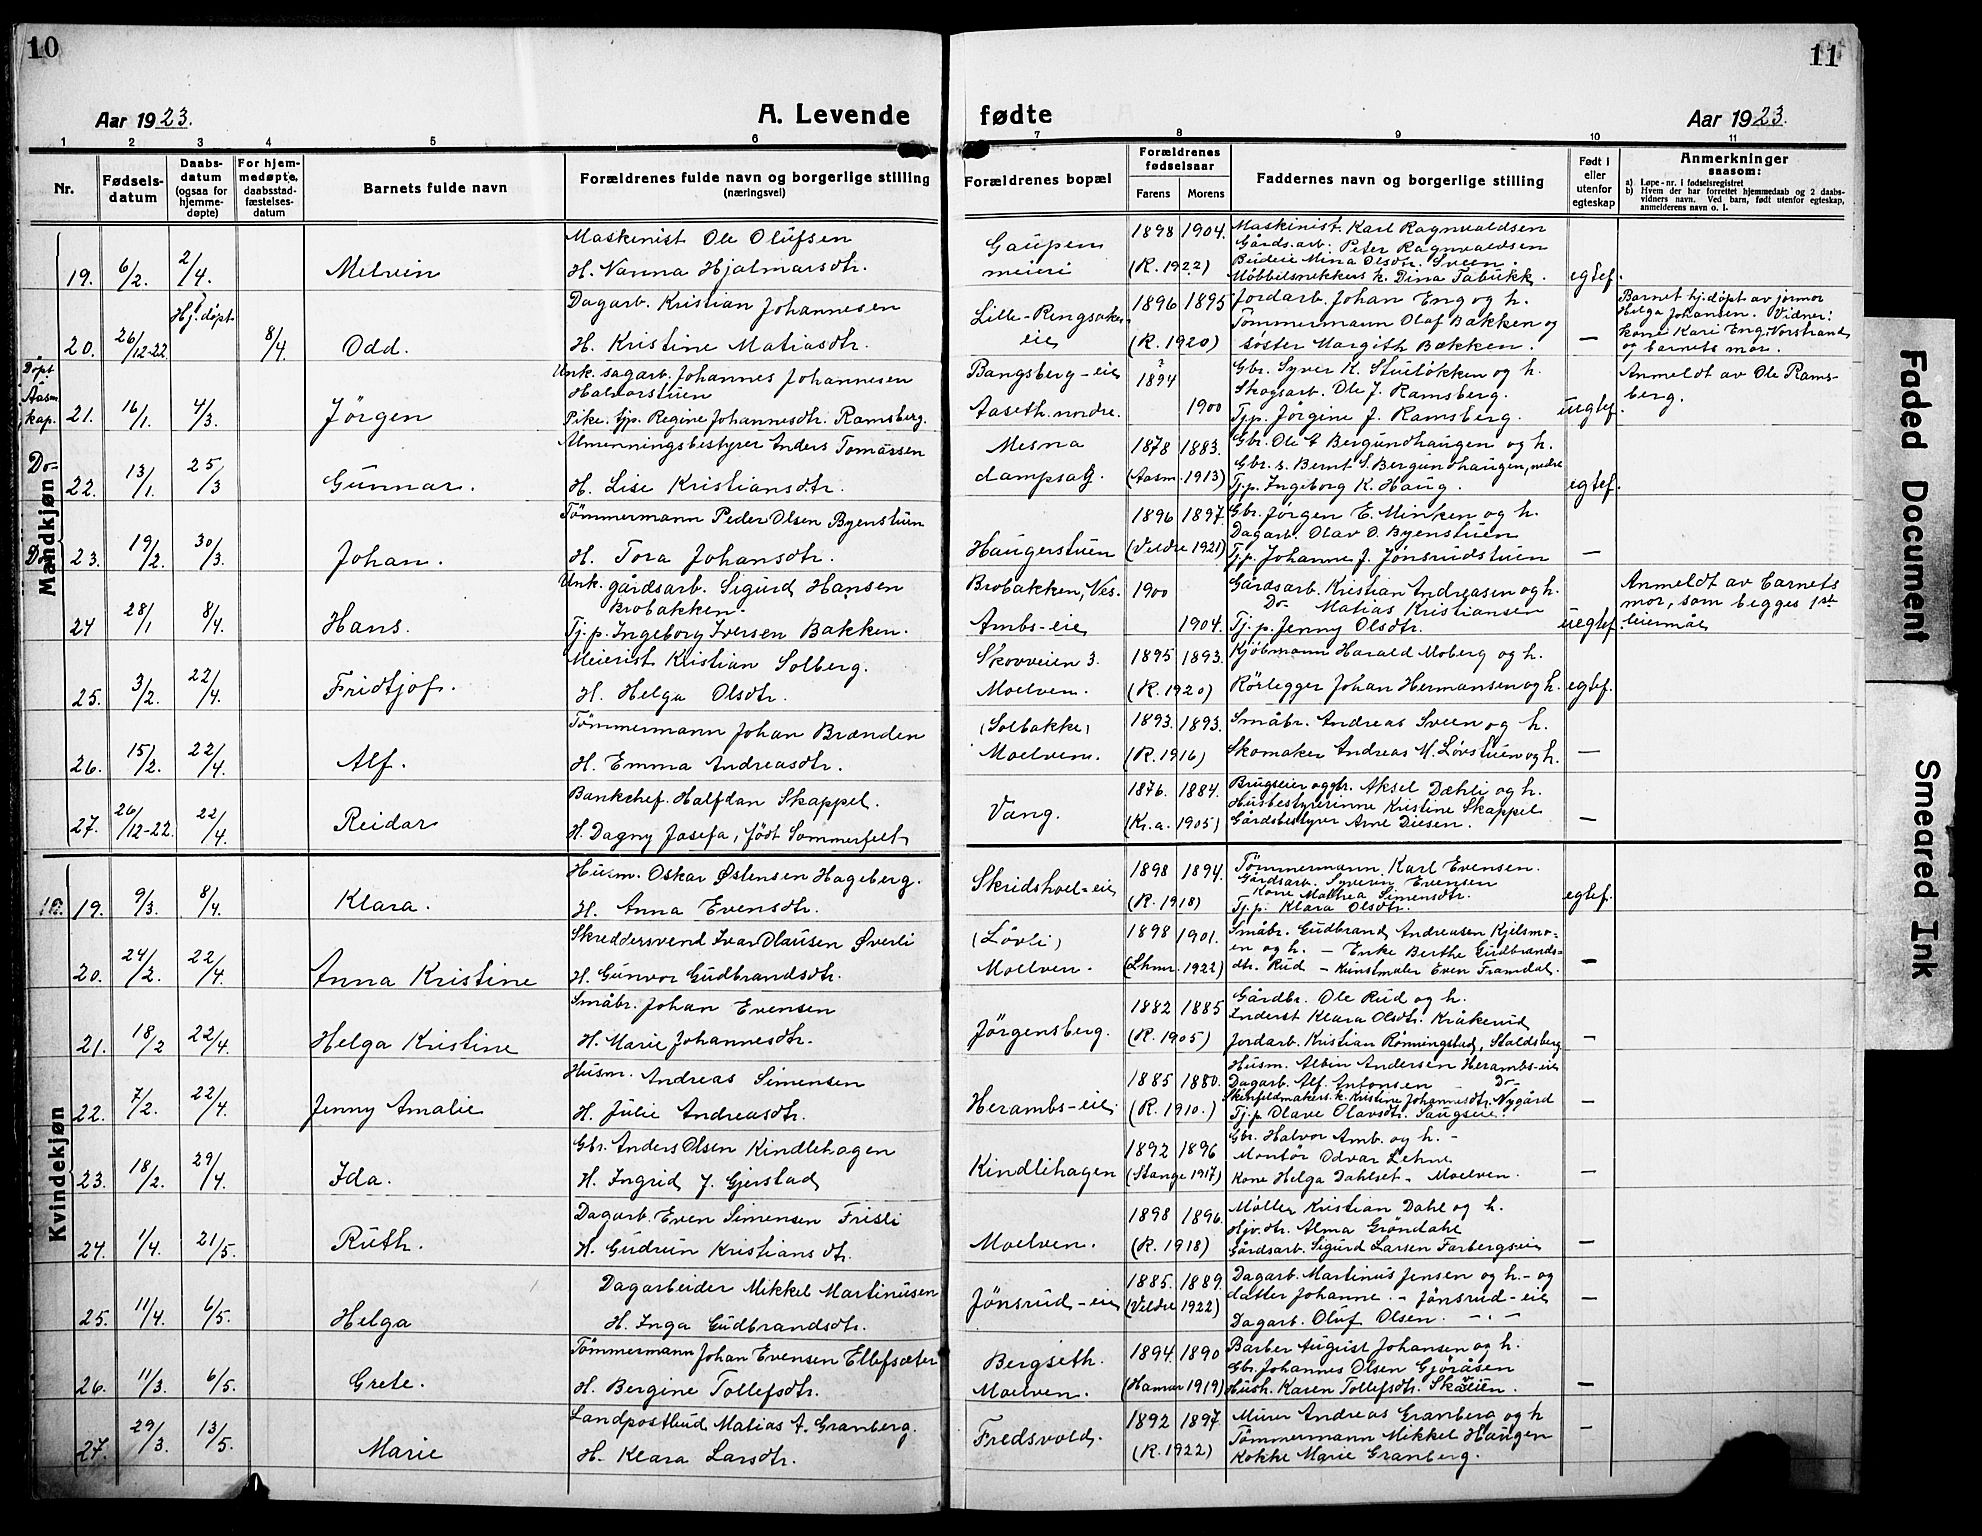 10
Aar 1923.
A. Levende
1 2 3 4 5 6
Nr.
Fødsels-
datum
Daabs-
datum
(ogsaa for
hjemme-
døpte)
For hjem-
medøpte,
daabsstad-
fæstelses-
datum
Barnets fulde navn
Forældrenes fulde navn og borgerlige stilling
(næringsvei)
Mandkjøn
Maskinist Ole Olufsen
19. 6/2. 2/4. Melvin H. Nanna Hjalmarsdtr.
Hj.døpt Dagarb. Kristian Johannesen
20. 26/12-22. 8/4. Odd. H. Kristine Matiasdtr.
Døpt i Aasm. kap.
Unk. sagarb. Johannes Johannesen
Halvorstuen
21. 16/1. 4/3. Jörgen Pike. Tjp. Regine Johannesdtr. Ramsberg.
Almenningsbestyrer Anders Tomassen
Do- 22. 13/1. 25/3 Gunnar. H. Lise Kristiansdtr.
Tömmermann Peder Olsen Byenstuen
Do- 23. 19/2. 30/3. Johan. H. Tora Johansdtr.
Unk. gårdsarb. Sigurd Hansen
Brobakken.
24 28/1 8/4. Hans. Tj.p. Ingeborg Iversen Bakken.
Meierist Kristian Solberg.
25. 3/2. 22/4. Fridtjof. H. Helga Olsdtr.
Tömmermann Johan Brænden
26. 15/2. 22/4. Alf. H. Emma Andreasdtr.
Bankchef. Halfdan Skappel.
27. 26/12-22. 22/4 Reidar H. Dagny Josefa, født Sommerfelt
Kvindekjøn
Husm. Oskar Østensen Hageberg.
19. 9/3. 8/4. Klara. H. Anna Evensdtr.
Skreddersvend Ivar Olausen Øverli
20. 24/2. 22/4. Anna Kristine H. Gunvor Gudbrandsdtr.
Småbr. Johan Evensen
21. 18/2 22/4. Helga Kristine H. Marie Johannesdtr.
Husm. Andreas Simensen
22. 7/2. 22/4. Jenny Amalie H. Julie Andreasdtr.
Gbr. Anders Olsen Kindlihagen
23. 18/2. 29/4. Ida. H. Ingrid J. Gjerstad
Dagarb. Even Simensen Frisli
24. 1/4. 21/5. Ruth. H. Gudrun Kristiansdtr.
Dagarbeider Mikkel Martinusen
25. 11/4. 6/5. Helga H. Inga Gudbrandsdtr.
Tömmermann Johan Evensen Ellefsæter
26. 11/3. 6/5. Grete. H. Bergine Tollefsdtr.
Landpostbud Matias A. Granberg.
27. 29/3. 13/5. Marie H. Klara Larsdtr.
11
fødte
Aar 1923.
7 8 9 10 11
Forældrenes bopæl
Forældrenes
fødselsaar
Farens Morens
Faddernes navn og borgerlige stilling
Født i
eller
utenfor
egteskap
Anmerkninger
saasom:
a) Løpe-nr. i fødselsregistret
b) Hvem der har forrettet hjemmedaab og 2 daabs-
vidners navn. Ved barn, født utenfor egteskap,
anmelderens navn o. l.
Gaupen 1898 1904. Maskinist. Karl Ragnvaldsen
Gårds.arb. Peter Ragnvaldsen
meieri (R. 1922) Budeie Mina Olsdtr. Sveen.
Möbbelsnekkers k. Dina Tabukk. egtef.
Lille-Ringsaker 1896 1895 Jordarb. Johan Eng og h.
Tömmermann Olaf Bakken og
eie (R. 1920) søster Margith Bakken. —
Barnet hj.døpt av jormor
Helga Johansen. Vidner:
kone Kari Eng, Norstrand
og barnets mor.
Bangsberg-eie 1894 ? Gbr. Syver K. Stuelökken og h.
Skogsarb. Ole J. Ramsberg.
Aaseth nordre. 1900 Tjp. Jörgine J. Ramsberg. uegtef.
Anmeldt av Ole Rams-
berg.
Mesna 1878 1883. Gbr. Ole E Bergundhaugen og h.
Gbr. s. Bernt S. Bergundhaugen, nedre
dampsag. (Aasm. 1913) Tj.p. Ingeborg K. Haug. egtef.
1896 1897. Gbr. Jörgen E. Minken og h.
Dagarb. Olav O. Byenstuen
Haugerstuen (Veldre 1921) Tj.p. Johanne J. Jönsrudstuen —
Brobakken, Ves. 1900 Gårdsarb. Kristian Andreasen og h.
Do — Matias Kristiansen
Ambs-eie 1904. Tj.p. Jenny Olsdtr. uegtef.
Anmeldt av barnets
mor, som begges 1ste
leiermål
Skovveien 3. 1895 1893. Kjöbmann Harald Moberg og h.
Moelven. (R. 1920) Rörlegger Johan Hermansen og h. egtef.
(Solbakke) 1893. 1893. Småbr. Andreas Sveen og h.
Moelven. (R. 1916) Skomaker Andreas M. Lövstuen og h. —
1876. 1884. Brugseier og gbr. Aksel Dæhli og h.
Husbestyrerinne Kristine Skappel
Vang. (Kr.a. 1905) Gårdsbestyrer Arne Diesen. —
1898 1894. Tömmermann Karl Evensen.
Gårdsarb. Syverin Evensen
Skridshol-eie Kone Mathea Simensdtr.
(R. 1918) Tj.p. Klara Olsdtr. egtef.
(Lövli) 1898 1901. Småbr. Gudbrand Andreasen Kjelsmo-
en og h. — Enke Berthe Gudbrands-
Moelven. (Lhmr. 1922) dtr. Rud — Kunstmaler Even Framdal. —
1882 1885 Gårdbr. Ole Rud og h.
Inderst Klara Olsdtr. Kråkerud
Jörgensberg. (R. 1905) Jordarb. Kristian Rønningstad, Staldsberg —
Husm. Albin Andersen Herambs-eie
1885 1880. Dagarb. Alf. Antonsen — Do —
Skinfeldmakers k. Kristine Johannesdtr. Nygård
Herambs-eie (R. 1910.) Tj.p. Olave Olavsdtr. Saugseie. —
1892 1896 Gbr. Halvor Amb. og h. -
Montör Odvar Lehne
Kindlihagen (Stange 1917) Kone Helga Dahlset - Moelven. —
1898 1896. Møller Kristian Dahl og h.
Hjv.dtr. Alma Gröndahl
Moelven. (R. 1918) Gårdsarb. Sigurd Larsen Farbergseie —
1885. 1889. Dagarb. Martinus Jensen og h. - og
Jönsrud-eie (Veldre 1922) datter Johanne. - Jönsrud-eie
Dagarb. Oluf Olsen. — " — —
Bergseth. 1894. 1890 Barber August Johansen og h.
Gbr. Johannes Olsen Gjöråsen
Moelven. (Hamar 1919) Hush. Karen Tollefsdtr. Skavlien. —
1892 1897. Murer Andreas Granberg og h
Fredsvold. Tömmermann Mikkel Haugen
(R. 1922) Kokke Marie Granberg. —
Faded Document
Smeared Ink